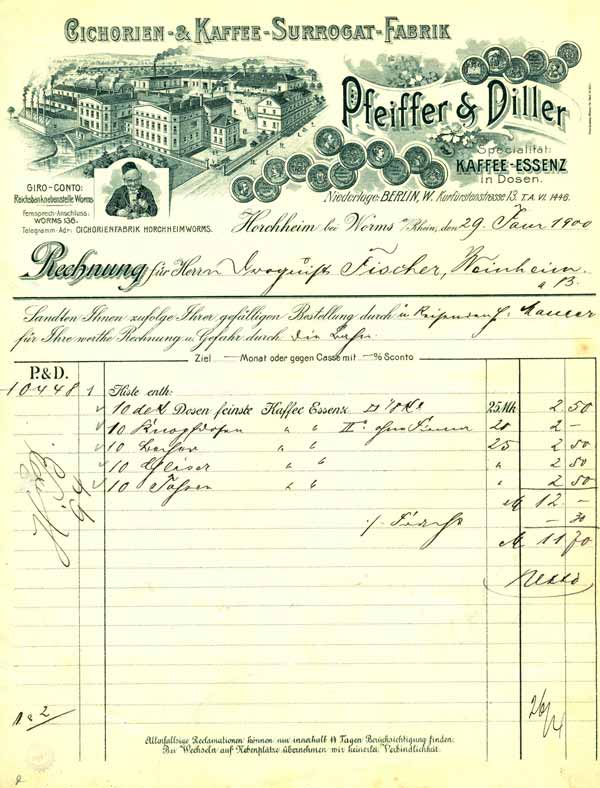 CICHORIEN- & KAFFEE-SURROGAT-FABRIK
Pfeiffer & Diller
Specialität:
KAFFEE-ESSENZ
in Dosen.
Niederlage: BERLIN, W. Kurfürstenstrasse 13. T.A. VI. 1446.
GIRO-CONTO:
Reichsbanknebenstelle Worms
Fernsprech-Anschluss:
WORMS 138.
Telegramm-Adr: CICHORIENFABRIK HORCHHEIMWORMS.
Horchheim bei Worms a/Rhein, den 29. Janr 1900
Rechnung für Herrn Droguist Fischer, Weinheim
a/B.
Sandten Ihnen zufolge Ihrer gefälligen Bestellung durch u Reisenden H.
für Ihre werthe Rechnung u. Gefahr durch die Bahn.
Ziel — Monat oder gegen Casse mit — % Sconto
P. & D.
10448 1 Kiste enth:
10 Dosen feinste Kaffee Essenz 25 Mk 2 50
10 Knopfdosen " " II a ohne Firma 20 2 —
10 Becher " " 25 2 50
10 Gläser " " " 2 50
10 " " " 2 50
M 12 —
./. Fracht — 30
M 11 70
Netto
1 a 2
26/4
Allenfallsige Reclamationen können nur innerhalb 14 Tagen Berücksichtigung finden.
Bei Wechseln auf Nebenplätze übernehmen wir keinerlei Verbindlichkeit.